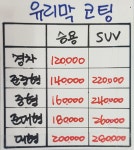 유리막 코팅
승용 SUV
경차 120000
준중형 140000 220000
중형 160000 240000
준대형 180000 260000
대형 200000 280000